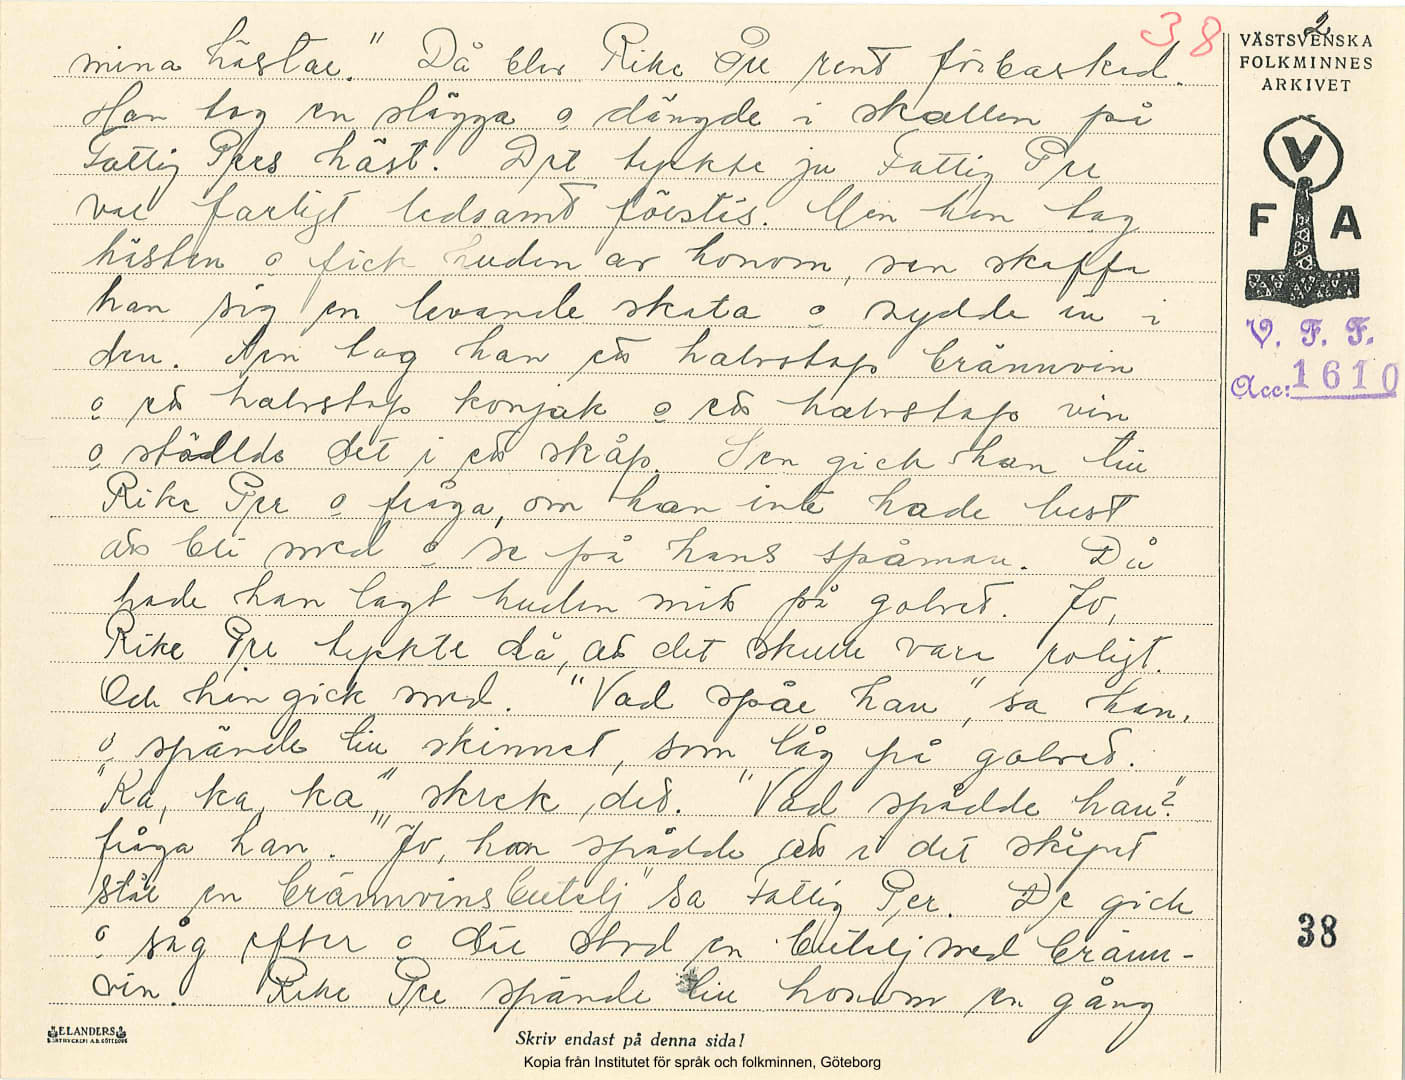 38
2
mina hästar." Då blev Rike Per rent förbaskad.
Han tog en slägga o dängde i skallen på
Fattig Pers häst. Det tyckte ju Fattig Per
var farligt ledsamt förstås. Men han tog
hästen o fick huden av honom, sen skaffa
han sig en levande skata o sydde in i
den. Sen tog han ett halvstop brännvin
o ett halvstop konjak o ett halvstop vin
o ställde det i ett skåp. Sen gick han till
Rike Per o fråga, om han inte hade lust
att bli med o se på hans spåman. Då
hade han lagt huden mitt på golvet. Jo,
Rike Per tyckte då, att det skulle vara roligt.
Och han gick med. "Vad spår han", sa han,
o spände till skinnet, som låg på golvet.
"Ka, ka, ka", skrek det. "Vad spådde han?"
fråga han. "Jo, han spådde att i det skåpet
står en brännvinsbutelj" sa Fattig Per. De gick
o såg efter o där stod en butelj med bränn-
vin. Rike Per spände till honom en gång
VÄSTSVENSKA
FOLKMINNES
ARKIVET
V
F A
V. F. F.
Acc: 1610
38
ELANDERS
BOKTRYCKERI A.B. GÖTEBORG
Skriv endast på denna sida!
Kopia från Institutet för språk och folkminnen, Göteborg